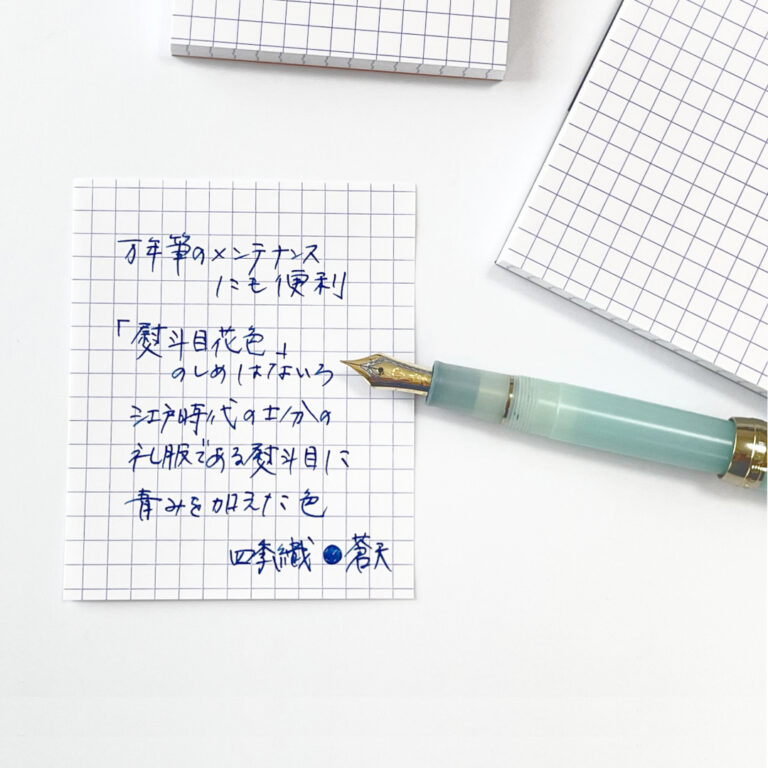 万年筆のメンテナンス
にも便利
「熨斗目花色」
のしめはないろ
江戸時代の士分の
礼服である熨斗目に
青みを加えた色
四季織●蒼天